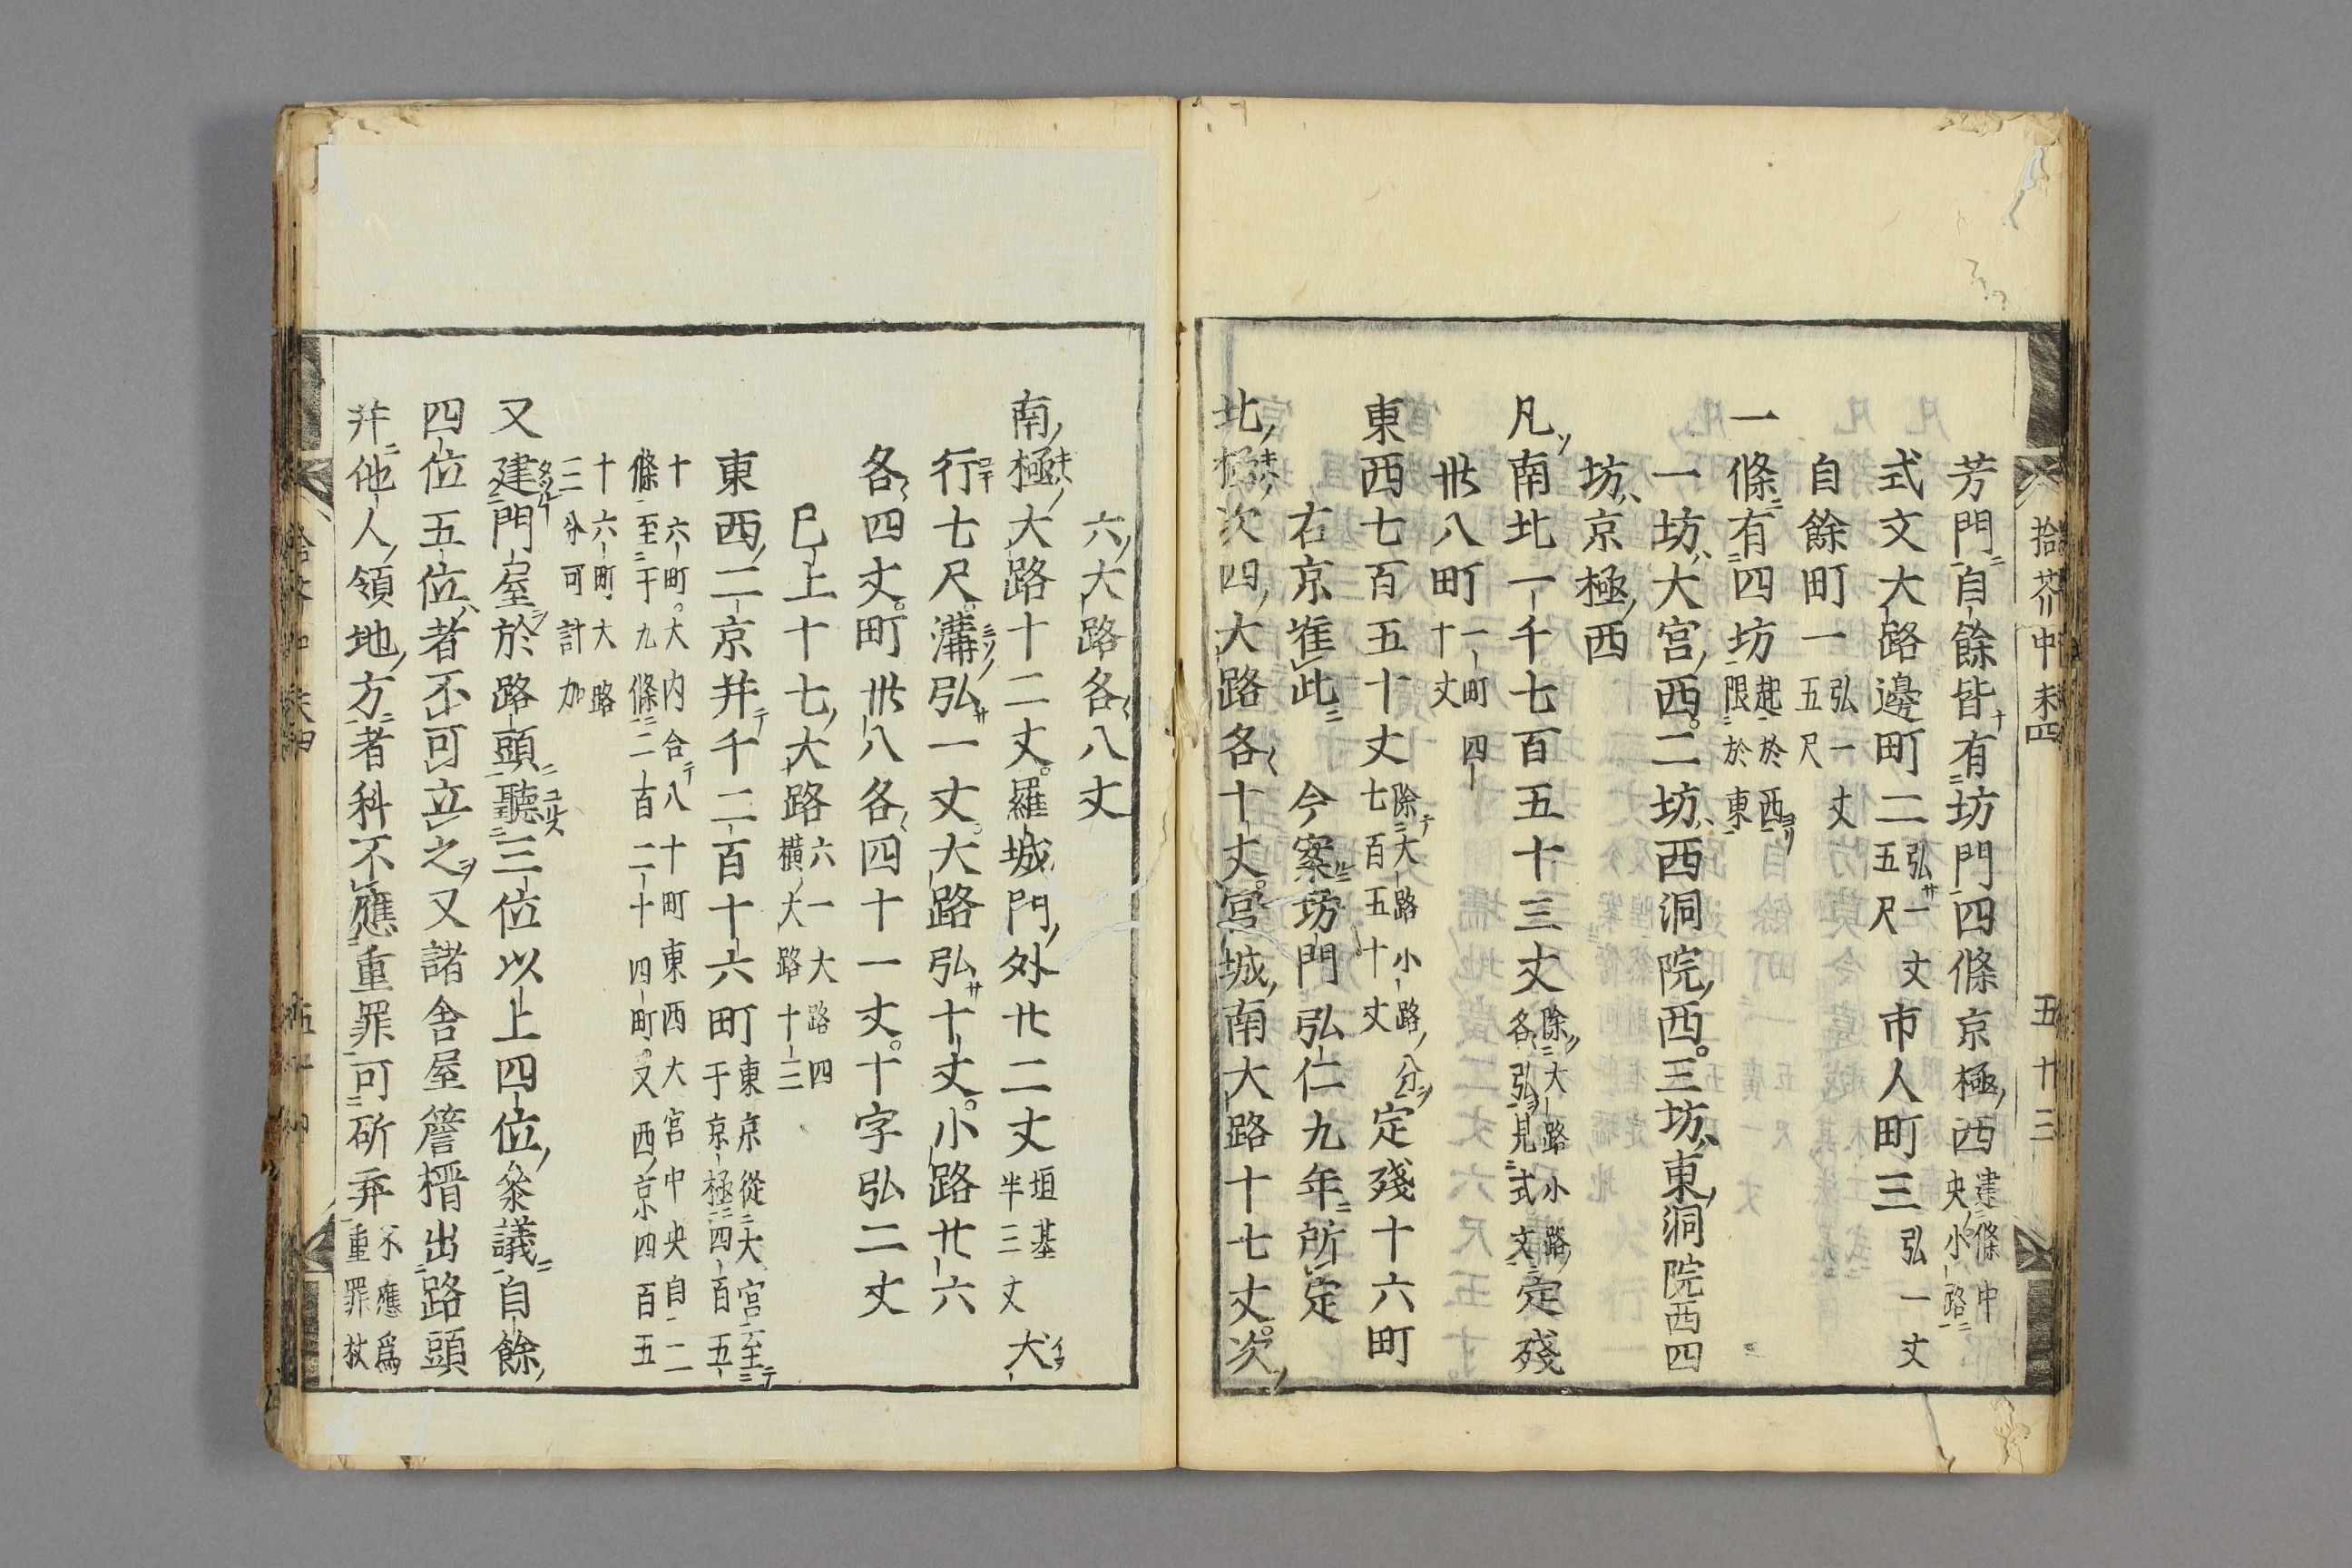 拾芥中末四 五十三
芳門自餘皆有坊門四條京極西建條中央小路
式文大路邊町二弘一丈五尺市人町三弘一丈
自餘町一弘一丈五尺
一條有四坊起於西限於東
一坊大宮西二坊西洞院西三坊東洞院西四
坊京極西
凡南北一千七百五十三丈除大路小路各弘見式文定殘
卅八町一町四十丈
東西七百五十丈除大路小路分七百五十丈定殘十六町
右京准此 今案坊門弘仁九年所定
北極次四大路各十丈宮城南大路十七丈次
六大路各八丈
南極大路十二丈羅城門外廿二丈垣基半三丈犬
行七尺溝弘一丈大路弘十丈小路廿六
各四丈町卅八各四十一丈十字弘二丈
巳上十七大路六一大路四橫大路十三
東西二京并千二百十六町東京從大宮至于京極四百五
十六町大内合八十町東西大宮中央自二條至于九條二百二十四町又西京四百五
十六町大路三分可計加
又建門屋於路頭聽三位以上四位參議自餘
四位五位者不可立之又諸舍屋簷榰出路頭
并他人領地方者科不應重罪可斫弃不應爲重罪杖